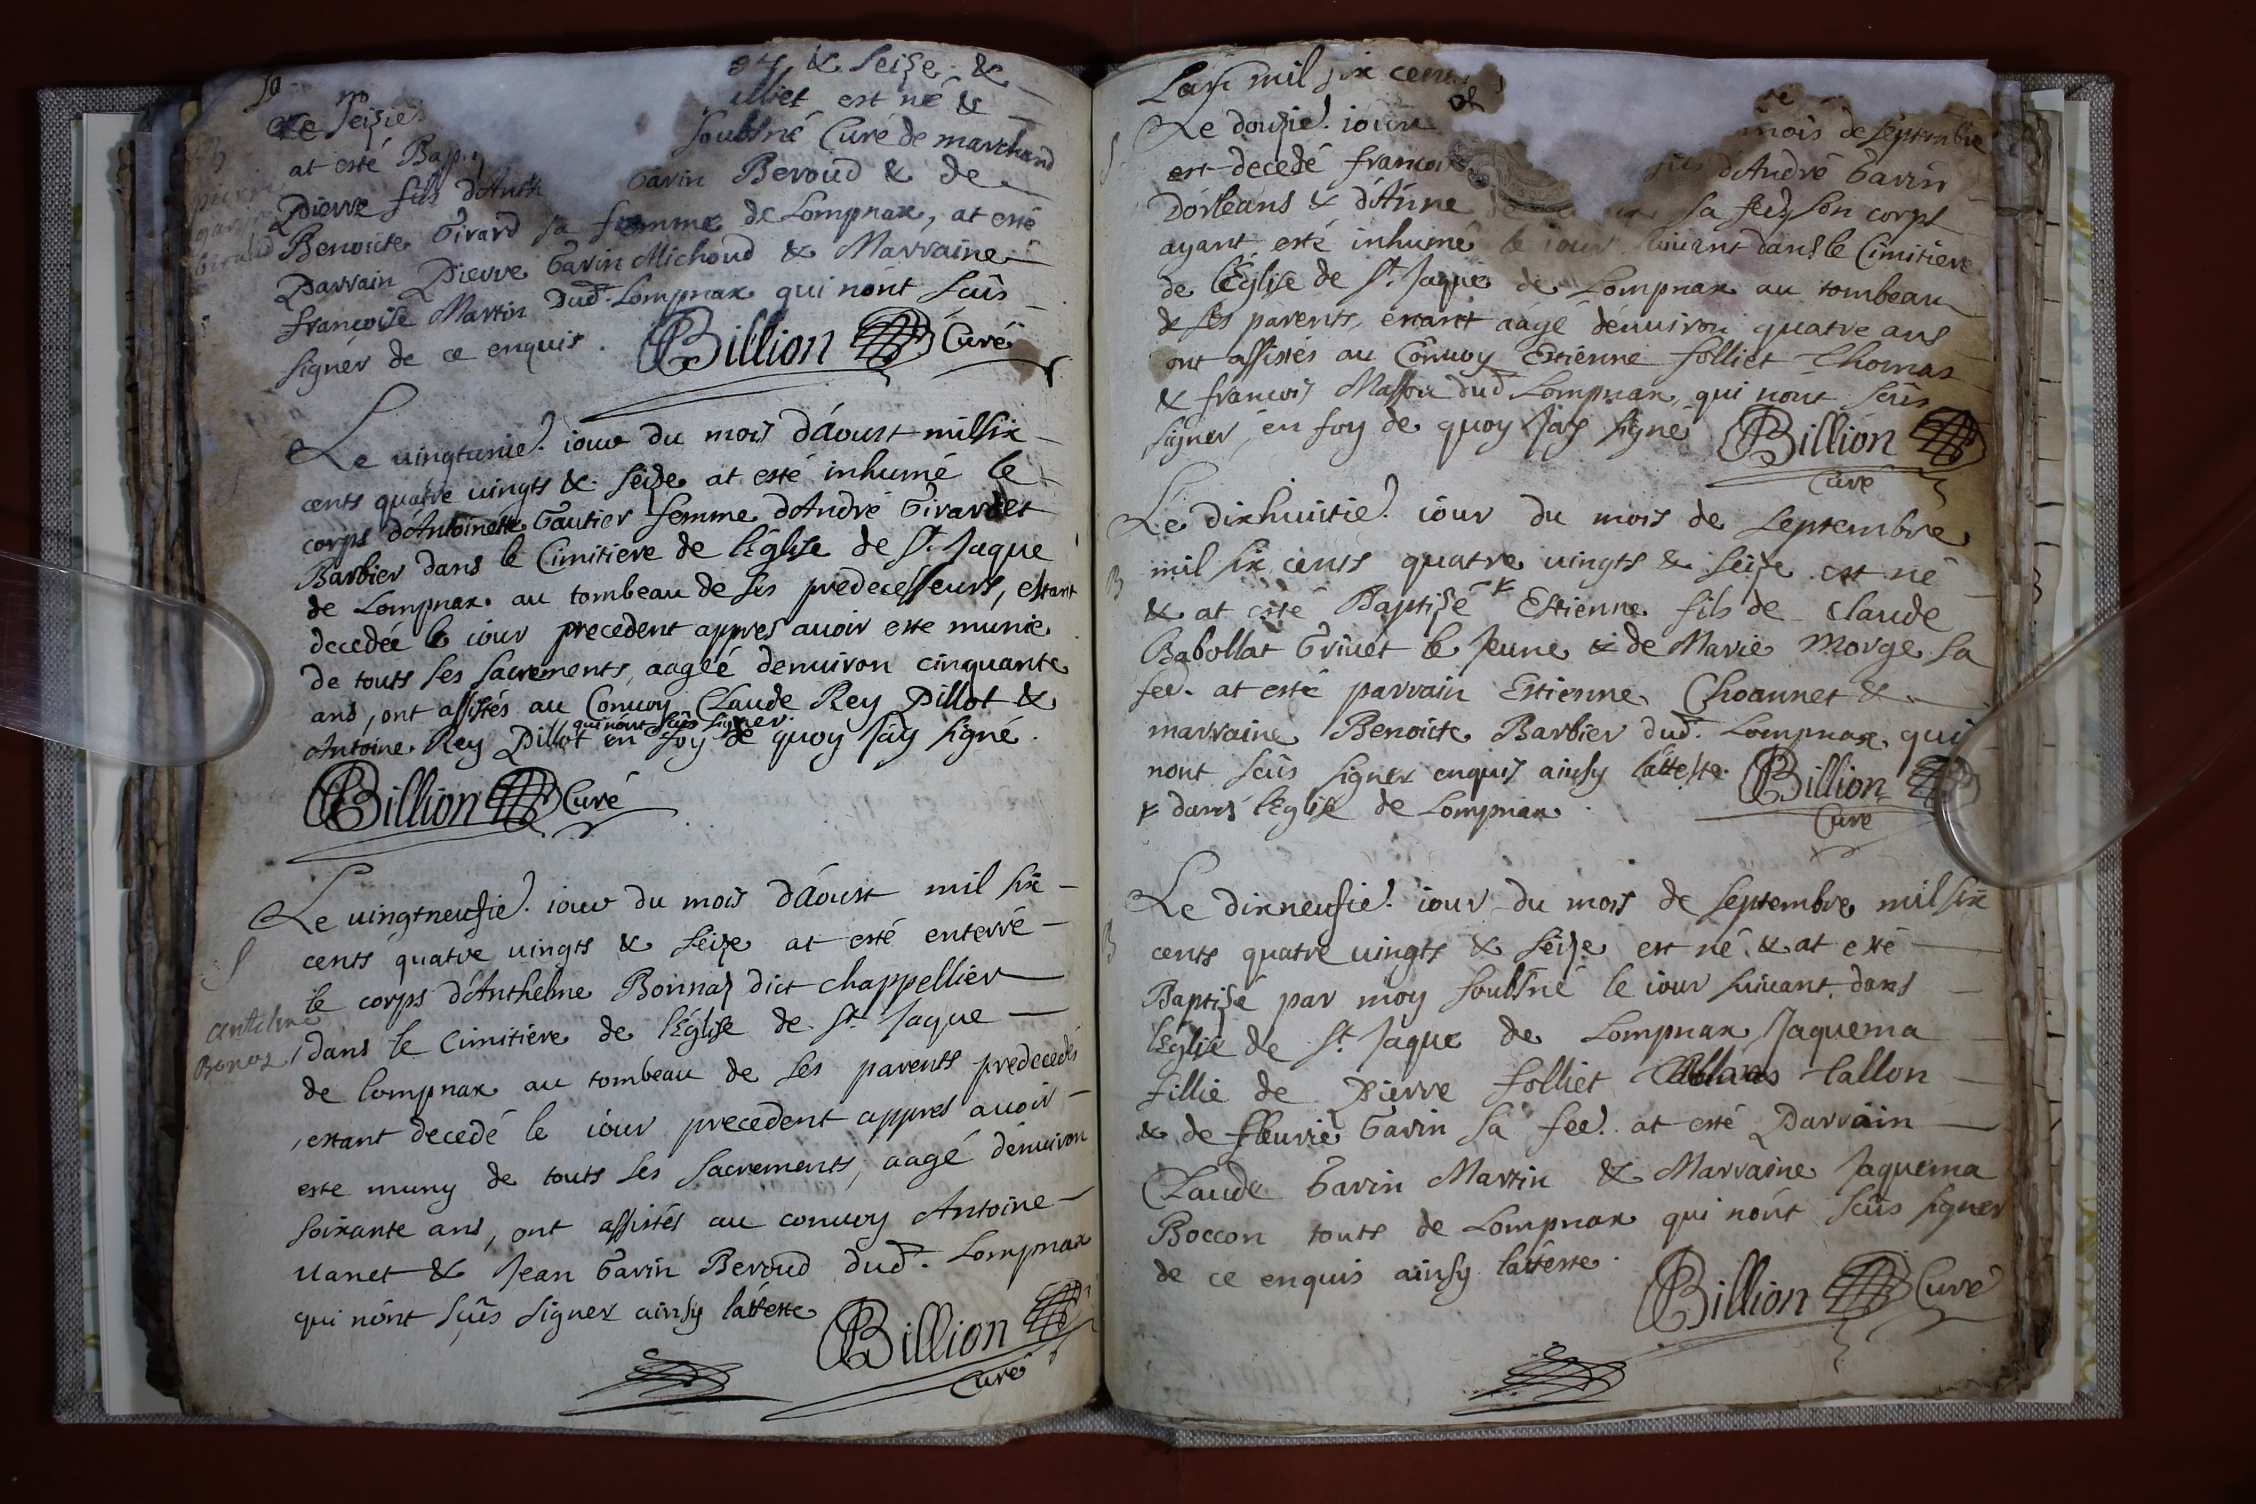 & seize &
Le seizie. ulliet est né &
at esté Bap soubsné Curé de marchand
Pierre fils d'Anth Gavin Beroud & de
Benoicte Girard sa femme de Lompnax, at esté
Parrain Pierre Gavin Michoud & Marraine
françoise Martin dud. Lompnax qui nont scûs
signer de ce enquis. Billion Curé
Le vingtunie. iour du mois d'Aoust mil six
cents quatre vingts & seize at esté inhumé le
corps d'Antoinette Gautier femme d'André Girardet
Barbier dans le Cimitiere de l'Église de St. Jaque
de Lompnax au tombeau de ses predecesseurs, estant
decedée le iour precedent appres auoir esté munie
de touts ses sacrements, aagée denuiron cinquante
ans, ont assistés au Conuoy Claude Rey Pillot &
qui nont scûs signer.
Antoine Rey Pillot en foy de quoy j'ay signé.
Billion Curé
Le vingtneufie. iour du mois d'Aoust mil six
cents quatre vingts & seize at esté enterré
S
le corps d'Anthelme Bonnaz dict chappellier
antelme
Bonaz
dans le Cimitiere de l'Église de St. Jaque
de Lompnax au tombeau de ses parents predecedés
estant decedé le iour precedent appres auoir
esté muny de touts ses sacrements, aagé dénuiron
soixante ans, ont assistés au conuoy Antoine
uanet & Jean Gavin Beroud dud. Lompnax
qui nónt scûs signer ainsy latteste
Billion
Curé
Lan mil six cens
Le douzie. iour mois de septembre
S
est decedé francois fils d'André Gavin
Dorleans & d'Anne sa feé, son corps
ayant esté inhumé le iour suiuant dans le Cimitiere
de l'Église de St. Jaque de Lompnax au tombeau
de ses parents, estant aagé dénuiron quatre ans
ont assistés au Conuoy Estienne folliet Thomas
& francois Masson dud. Lompnax, qui nont scûs
signer, en foy de quoy j'ay signé Billion
Curé
Le dixhuitie. iour du mois de septembre
mil six cents quatre vingts & seize est né
B
& at esté Baptizé + Estienne fils de Claude
Babollat Grivet le Jeune & de Marie Morge sa
feé. at esté parrain Estienne Choannet &
marraine Benoicte Barbier dud. Lompnax, qui
nont scûs signer enquis ainsy latteste. Billion
+ dans l'Église de Lompnax.
Curé
Le dixneufie. iour du mois de septembre mil six
B
cents quatre vingts & seize est né & at esté
Baptisé par moy soubsné le iour suiuant dans
l'Église de St. Jaque de Lompnax Jaquema
fillie de Pierre folliet Tallon
& de fleurie Gavin sa feé. at esté Parrain
Claude Gavin Martin & Marraine Jaquema
Boccon touts de Lompnax qui nónt scûs signer
de ce enquis ainsy latteste.
Billion Curé